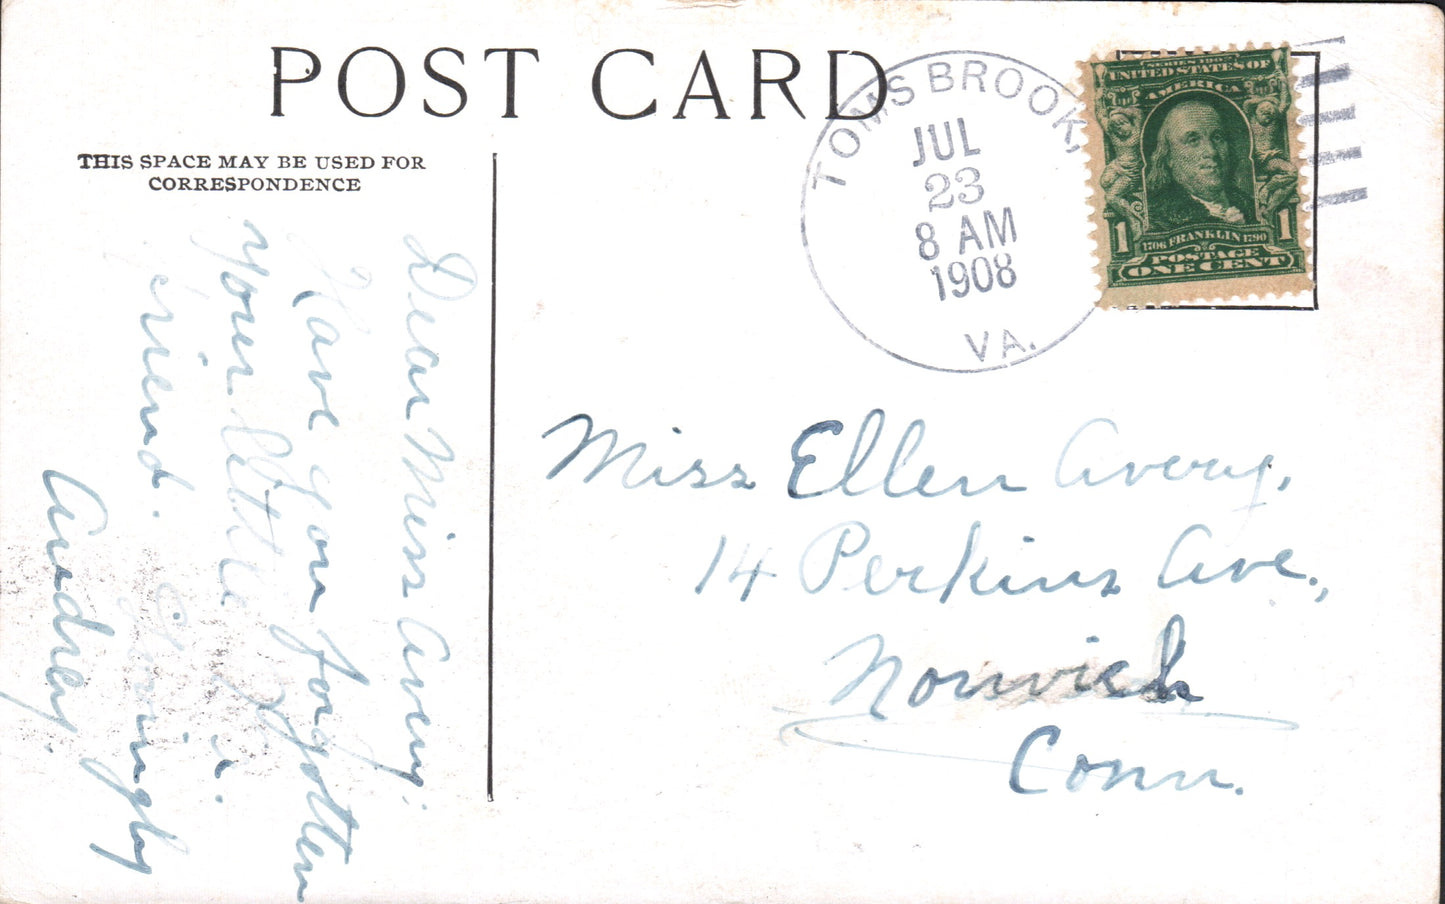 POST CARD
THIS SPACE MAY BE USED FOR
CORRESPONDENCE
TOMS BROOK,
JUL
23
8 AM
1908
VA.
UNITED STATES OF
AMERICA
1 1706 FRANKLIN 1790 1
POSTAGE
ONE CENT
Dear Miss Avery:
Have you forgotten
your little
friend.
Lovingly
Audrey.
Miss Ellen Avery,
14 Perkins Ave.,
Norwich
Conn.